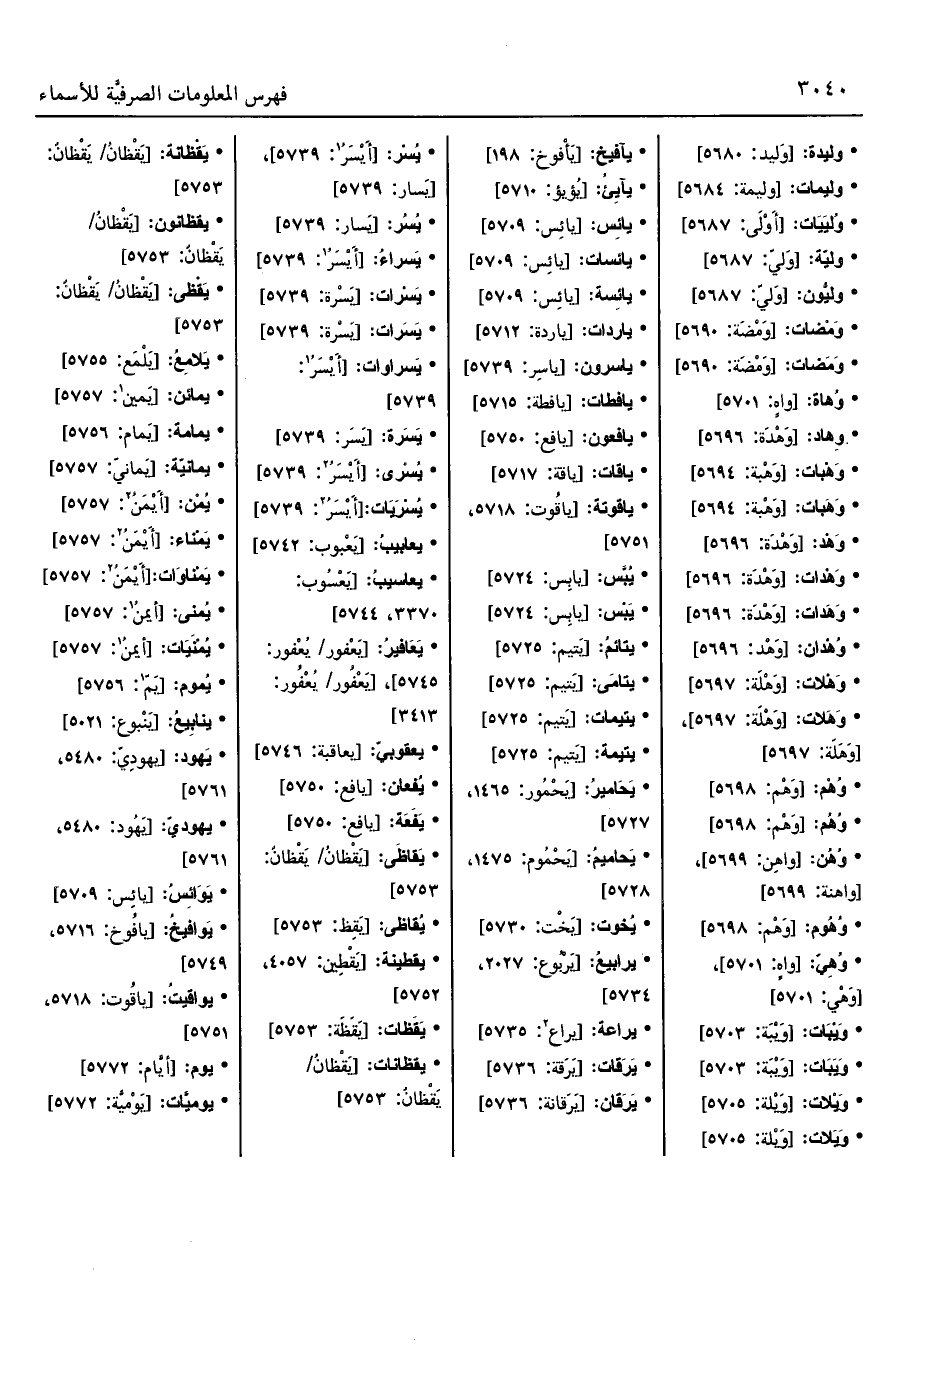 ٣٠٤٠
فهرس المعلومات الصرفيَّة للأسماء
• وليدة: [وَليد: ٥٦٨٠]
• وليمات: [وليمة: ٥٦٨٤]
• وُلْيَيَات: [أَوْلَى: ٥٦٨٧]
• وليّة: [وَليّ: ٥٦٨٧]
• وليُّون: [وَليّ: ٥٦٨٧]
• وَمْضات: [وَمْضَة: ٥٦٩٠]
• وَمَضات: [وَمْضَة: ٥٦٩٠]
• وُهاة: [واهٍ: ٥٧٠١]
• وِهاد: [وَهْدَة: ٥٦٩٦]
• وَهْبات: [وَهْبة: ٥٦٩٤]
• وَهَبات: [وَهْبة: ٥٦٩٤]
• وَهْد: [وَهْدَة: ٥٦٩٦]
• وَهْدات: [وَهْدَة: ٥٦٩٦]
• وَهَدات: [وَهْدَة: ٥٦٩٦]
• وُهْدان: [وَهْد: ٥٦٩٦]
• وَهْلات: [وَهْلَة: ٥٦٩٧]
• وَهَلات: [وَهْلَة: ٥٦٩٧]،
[وَهَلَة: ٥٦٩٧]
• وُهْم: [وَهْم: ٥٦٩٨]
• وُهُم: [وَهْم: ٥٦٩٨]
• وُهُن: [واهن: ٥٦٩٩]،
[واهنة: ٥٦٩٩]
• وُهُوم: [وَهْم: ٥٦٩٨]
• وُهِيّ: [واهٍ: ٥٧٠١]،
[وَهْي: ٥٧٠١]
• وَيْبَات: [وَيْبَة: ٥٧٠٣]
• وَيَبَات: [وَيْبَة: ٥٧٠٣]
• وَيْلات: [وَيْلة: ٥٧٠٥]
• وَيَلات: [وَيْلة: ٥٧٠٥]
• يآفيخ: [يَأْفوخ: ١٩٨]
• يآيئُ: [يُؤيؤ: ٥٧١٠]
• يائس: [يائِس: ٥٧٠٩]
• يائسات: [يائِس: ٥٧٠٩]
• يائسة: [يائِس: ٥٧٠٩]
• ياردات: [ياردة: ٥٧١٢]
• ياسرون: [ياسِر: ٥٧٣٩]
• يافطات: [يافطة: ٥٧١٥]
• يافعون: [يافع: ٥٧٥٠]
• ياقات: [ياقة: ٥٧١٧]
• ياقوتة: [ياقُوت: ٥٧١٨،
٥٧٥١]
• يُبَّس: [يابِس: ٥٧٢٤]
• يَبْس: [يابِس: ٥٧٢٤]
• يتائمُ: [يَتيم: ٥٧٢٥]
• يتامَى: [يَتيم: ٥٧٢٥]
• يتيمات: [يَتيم: ٥٧٢٥]
• يتيمة: [يَتيم: ٥٧٢٥]
• يَحَاميرُ: [يَحْمُور: ١٤٦٥،
٥٧٢٧]
• يَحاميمُ: [يَحْمُوم: ١٤٧٥،
٥٧٢٨]
• يُخوت: [يَخْت: ٥٧٣٠]
• يرابيعُ: [يَرْبُوع: ٢٠٢٧،
٥٧٣٤]
• يراعة: [يراع٢: ٥٧٣٥]
• يَرَقات: [يَرَقة: ٥٧٣٦]
• يَرَقان: [يَرَقانة: ٥٧٣٦]
• يُسْر: [أَيْسَر١: ٥٧٣٩]،
[يَسار: ٥٧٣٩]
• يُسُر: [يَسار: ٥٧٣٩]
• يَسراءُ: [أَيْسَرُ١: ٥٧٣٩]
• يَسْرات: [يَسْرة: ٥٧٣٩]
• يَسَرات: [يَسْرة: ٥٧٣٩]
• يَسراوات: [أَيْسَرُ١:
٥٧٣٩]
• يَسَرَة: [يَسَر: ٥٧٣٩]
• يُسْرى: [أَيْسَرُ٢: ٥٧٣٩]
• يُسْرَيَات:[أَيْسَرُ٢: ٥٧٣٩]
• يعابيبُ: [يَعْبوب: ٥٧٤٢]
• يعاسيبُ: [يَعْسُوب:
٣٣٧٠، ٥٧٤٤]
• يَعَافيرُ: [يَعْفور/ يُعْفور:
٥٧٤٥]، [يَعْفُور/ يُعْفُور:
٣٤١٣]
• يعقوبيّ: [يعاقبة: ٥٧٤٦]
• يُفعان: [يافع: ٥٧٥٠]
• يَفَعَة: [يافع: ٥٧٥٠]
• يَقاظَى: [يَقْظانُ/ يَقْظانٌ:
٥٧٥٣]
• يُقاظى: [يَقِظ: ٥٧٥٣]
• يقطينة: [يَقْطِين: ٤٠٥٧،
٥٧٥٢]
• يَقَظات: [يَقَظَة: ٥٧٥٣]
• يقظانات: [يَقْظانُ/
يَقْظانٌ: ٥٧٥٣]
• يَقْظانة: [يَقْظانُ/ يَقْظانٌ:
٥٧٥٣]
• يقظانون: [يَقْظانُ/
يَقْظانٌ: ٥٧٥٣]
• يَقْظى: [يَقْظانُ/ يَقْظانٌ:
٥٧٥٣]
• يَلامعُ: [يَلْمَع: ٥٧٥٥]
• يمائن: [يَمين١: ٥٧٥٧]
• يمامة: [يَمام: ٥٧٥٦]
• يمانيّة: [يَمانيّ: ٥٧٥٧]
• يُمْن: [أَيْمَنُ٢: ٥٧٥٧]
• يَمْناء: [أَيْمَنُ٢: ٥٧٥٧]
• يَمْناوَات:[أَيْمَنُ٢: ٥٧٥٧]
• يُمنى: [أيمنُ١: ٥٧٥٧]
• يُمْنَيَات: [أيمنُ١: ٥٧٥٧]
• يُموم: [يَمّ١: ٥٧٥٦]
• ينابيعُ: [يَنْبوع: ٥٠٢١]
• يَهود: [يهوديّ: ٥٤٨٠،
٥٧٦١]
• يهوديّ: [يَهُود: ٥٤٨٠،
٥٧٦١]
• يَوَائسُ: [يائِس: ٥٧٠٩]
• يَوافيخُ: [يافُوخ: ٥٧١٦،
٥٧٤٩]
• يواقيتُ: [ياقُوت: ٥٧١٨،
٥٧٥١]
• يوم: [أيَّام: ٥٧٧٢]
• يوميَّات: [يَوْميَّة: ٥٧٧٢]